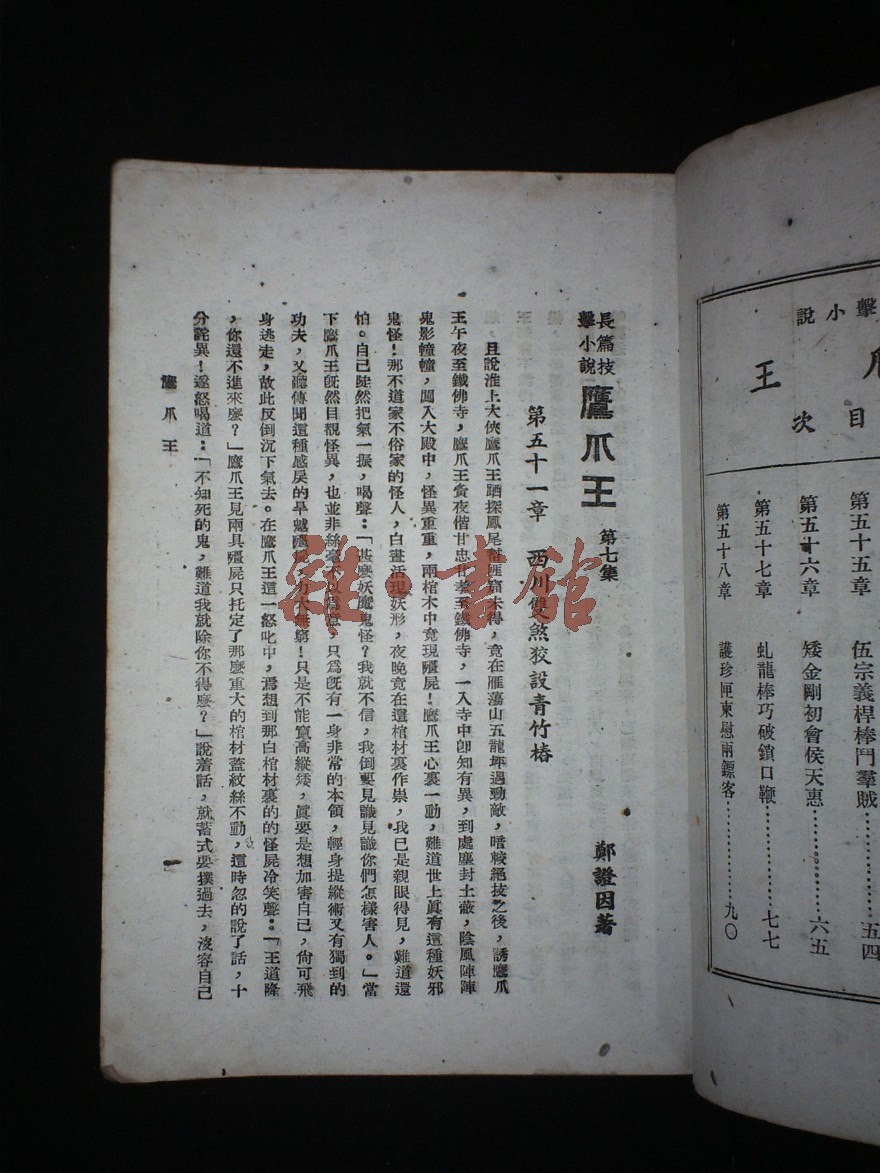 擊小說
爪王
目次
第五十五章 伍宗義桿棒鬥羣賊……五四
第五十六章 矮金剛初會侯天惠……六五
第五十七章 虬龍棒巧破鎖口鞭……七七
第五十八章 護珍匣柬慰兩鏢客……九〇
長篇技擊小說 鷹爪王 第七集
鄭證因著
第五十一章 西川雙煞狡設青竹樁
且說淮上大俠鷹爪王踩探鳳尾幫匪窟未得，竟在雁蕩山五龍坪遇勁敵，嗜較絕技之後，誘鷹爪
王午夜至鐵佛寺，鷹爪王夤夜偕甘忠甘孝至鐵佛寺，一入寺中卽知有異，到處塵封土蔽，陰風陣陣
鬼影幢幢，闖入大殿中，怪異重重，兩棺木中竟現殭屍！鷹爪王心裏一動，難道世上眞有這種妖邪
鬼怪！那不道家不俗家的怪人，白晝活現妖形，夜晚竟在這棺材裏作祟，我已是親眼得見，難道還
怕。自己陡然把氣一振，喝聲：「甚麽妖魔鬼怪？我就不信，我倒要見識見識你們怎樣害人。」當
下鷹爪王旣然目覩怪異，也並非絲毫不以爲意，只爲旣有一身非常的本領，輕身提縱術又有獨到的
功夫，又聽傳聞這種感戾的旱魃殭屍，力大無窮！只是不能竄高縱矮，眞要是想加害自己，尙可飛
身逃走，故此反倒沉下氣去。在鷹爪王這一怒叱中，焉想到那白棺材裏的的怪屍冷笑聲：「王道隆
，你還不進來麽？」鷹爪王見兩具殭屍只托定了那麽重大的棺材蓋紋絲不動，這時忽的說了話，十
分詫異！遂怒喝道：「不知死的鬼，難道我就除你不得麽？」說着話，就蓄式要撲過去，沒容自己
鷹爪王
一
雜·書館